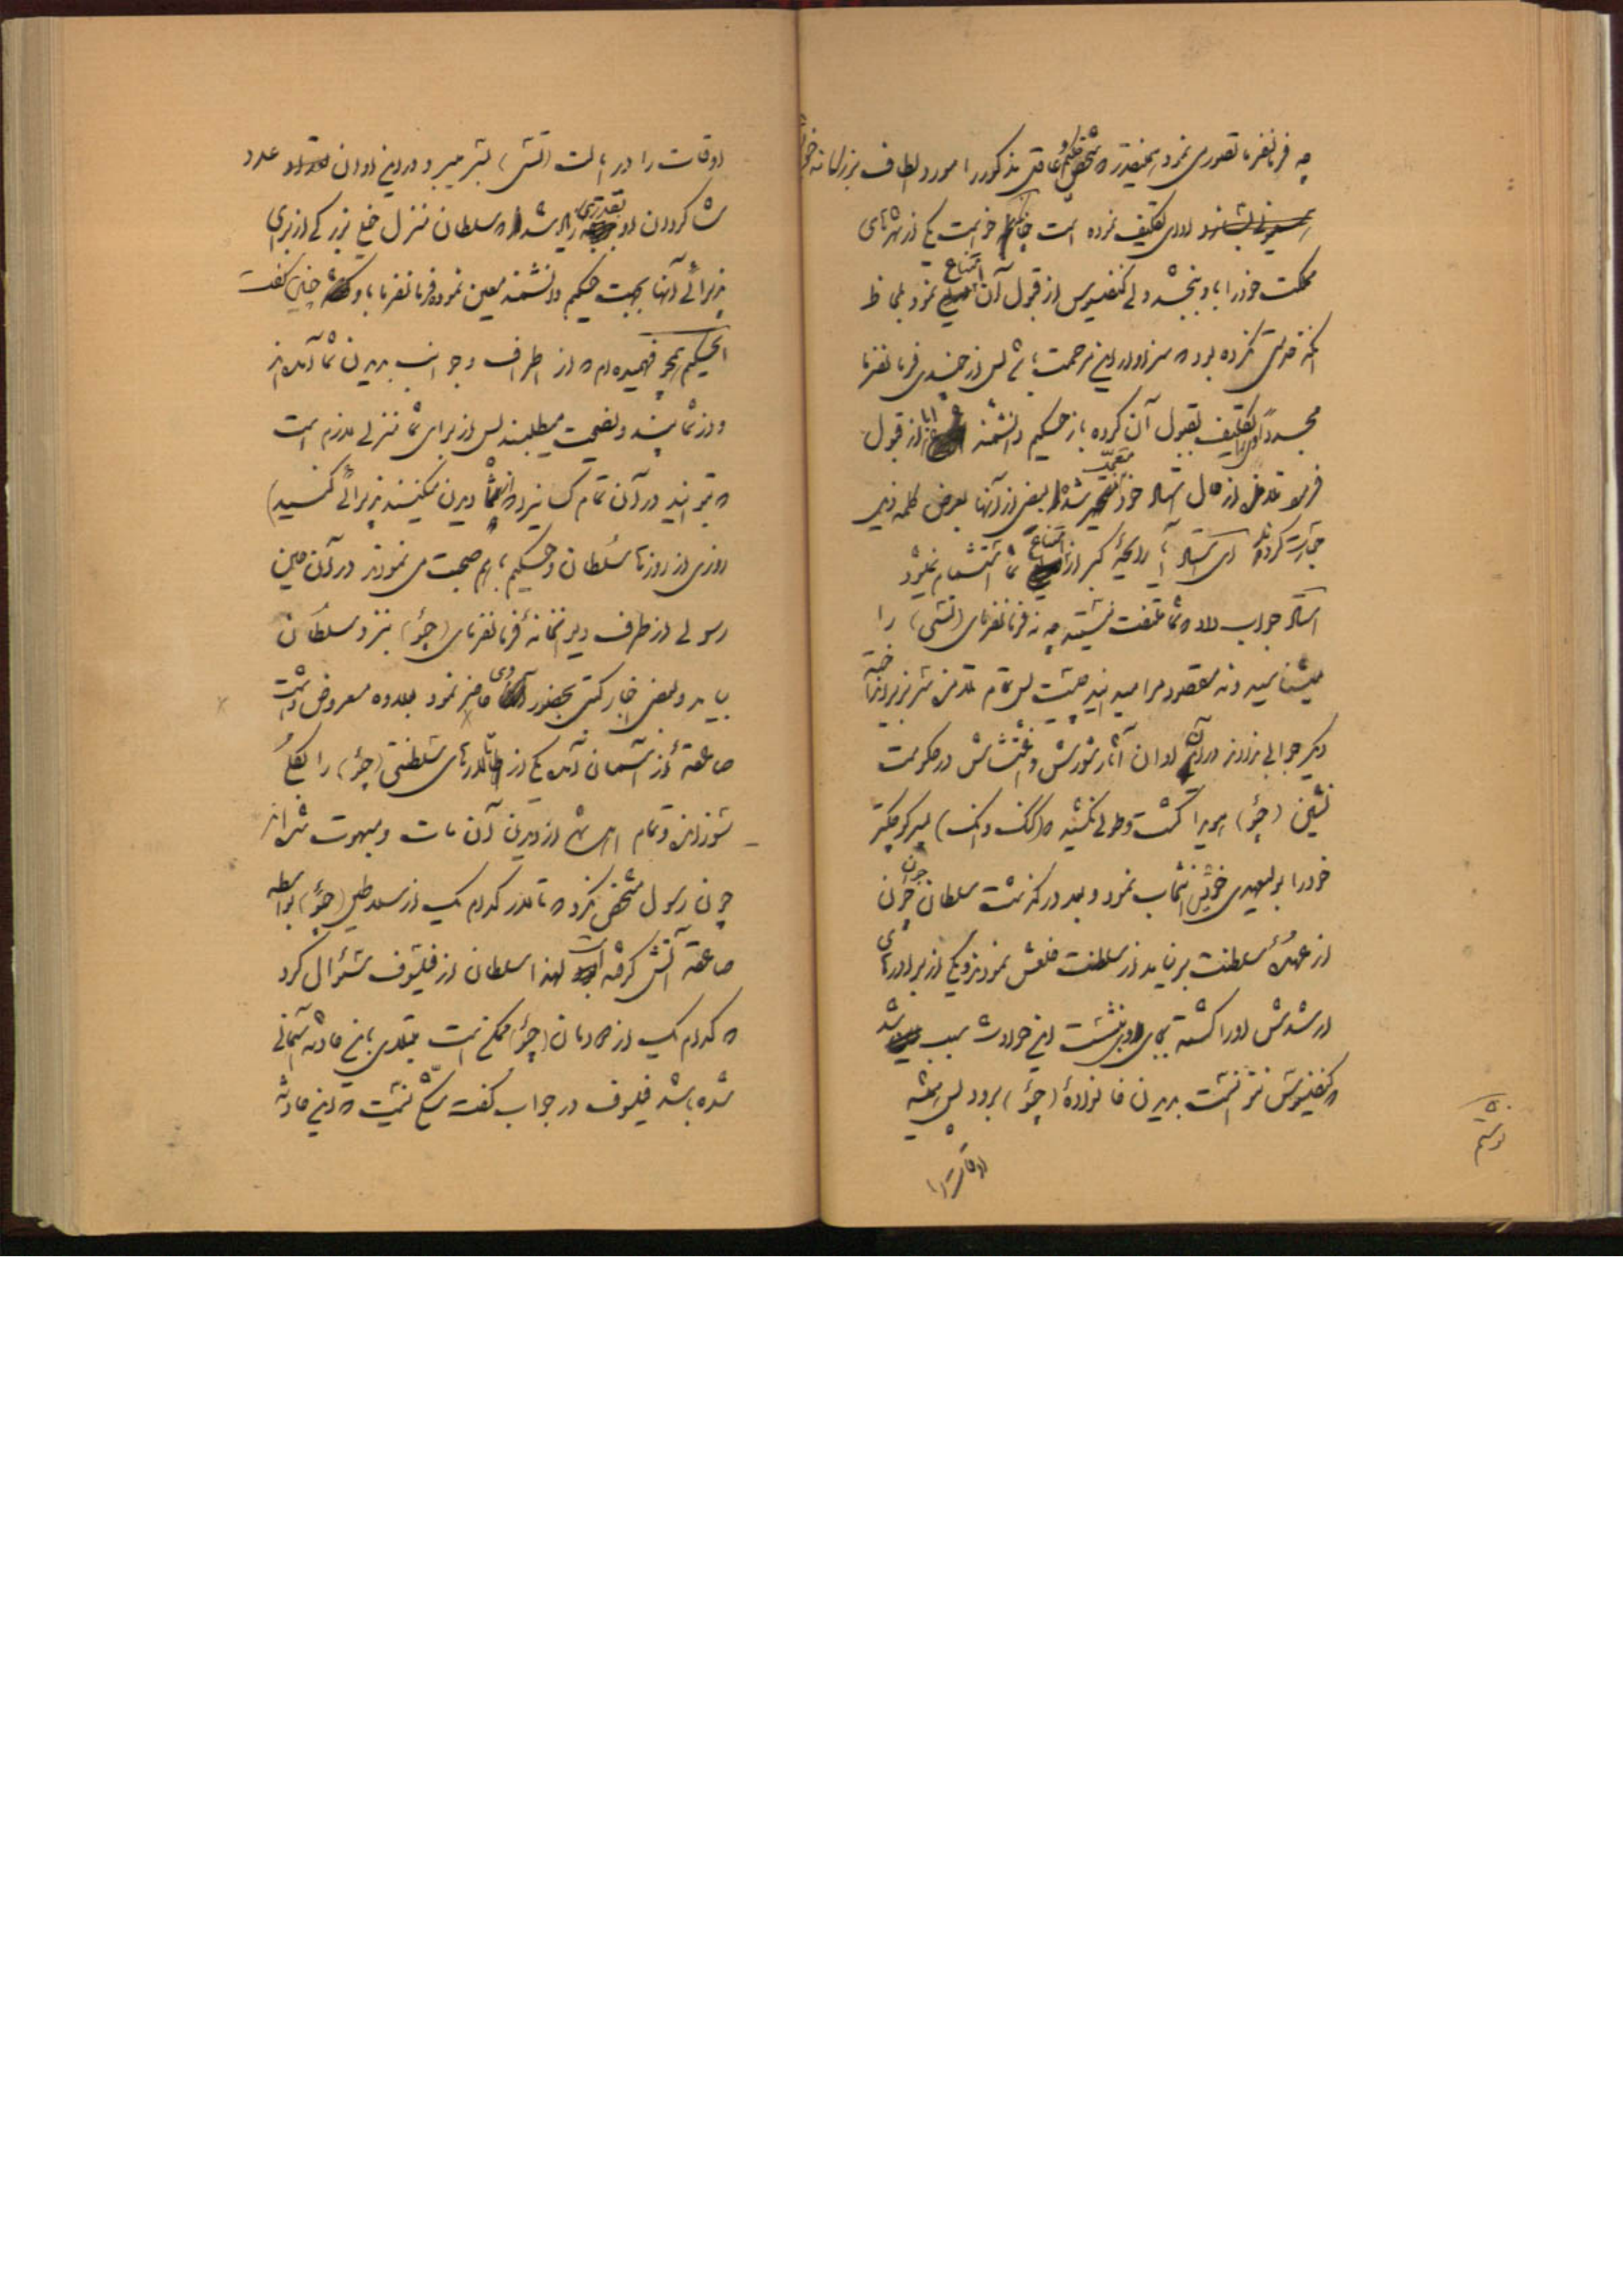 چه فرمانفرما تصوری نمود همینقدر که شخص حکیم و عاقل مذکور را مورد الطاف بزرگانه خود
او را تکلیف نموده است چنانکه خواست یکی از شهرهای
مملکت خود را باو ببخشد ولی کنفسیوس از قبول آن امتناع نمود بملاحظه
آنکه خدمتی نکرده بود که سزاوار این مرحمت باشد پس از چندی فرمانفرما
مجدداً او را تکلیف بقبول آن کرده باز حکیم دانشمند ابا از قبول
فرمود تلامذه از حال استاد خود متعجب شده بعضی از آنها بعرض کلمه ذیل
جسارت کردند که ای استاد آیا رایحهٔ کبر از امتناع شما استشمام نمیشود
استاد جواب داد که شما ملتفت نیستید چه نه فرمانفرمای (تسی) را
میشناسید و نه مقصود مرا میدانید چیست پس تمام تلامذه سر بزیر انداخته
دیگر جوابی ندادند در آن اوان آثار شورش و اغتشاش در حکومت
نشین (چئو) هویدا گشت و طولی نکشید که (کنگ وانگ) پسر کوچکتر
خود را بولیعهدی خویش انتخاب نمود و بعد درگذشت سلطان جوان چون
از عهدهٔ سلطنت برنیامد از سلطنت خلعش نمودند و یکی از برادرهای
ارشدش او را کشته بجای او بنشست این حوادث سبب شد
که کنفسیوس نتوانست بدیدن خانوادهٔ (چئو) برود پس همیشه
اوقات را
اوقات را در ایالت (تسی) بسر میبرد و در این اوان عدد
شاگردان او بقدری زیاد شد که سلطان منزل خیلی بزرگی از برای
پذیرائی آنها بجهت حکیم دانشمند معین نمود فرمانفرما باو چنین گفت
ایحکیم همچو فهمیده‌ام که از اطراف و جوانب بدیدن شما آمده‌اند
و از شما پند و نصیحت میطلبند پس از برای شما منزلی لازم است
که بتوانید در آن تمام کسانیرا که از شما دیدن میکنند پذیرائی کنید)
روزی از روزها سلطان و حکیم باهم صحبت می نمودند در آن حین
رسولی از طرف دیوانخانهٔ فرمانفرمای (چئو) بنزد سلطان
بیامد و بعضی اخبار کتبی بحضور وی حاضر نمود بعلاوه معروض داشت
صاعقهٔ از آسمان آمد یکی از تالارهای سلطنتی (چئو) را بکلی
بسوزاند و تمام اهل شهر از دیدن آن مات و مبهوت شده‌اند
چون رسول مشخص نکرد که تالار کدام یک از سلاطین (چئو) بواسطه
صاعقه آتش گرفته است لهذا سلطان از فیلسوف سئوال کرد
که کدام یک از خادمان (چئو) ممکن است مبتلای باین حادثه آسمانی
شده باشد فیلسوف در جواب گفت شکی نیست که این حادثه